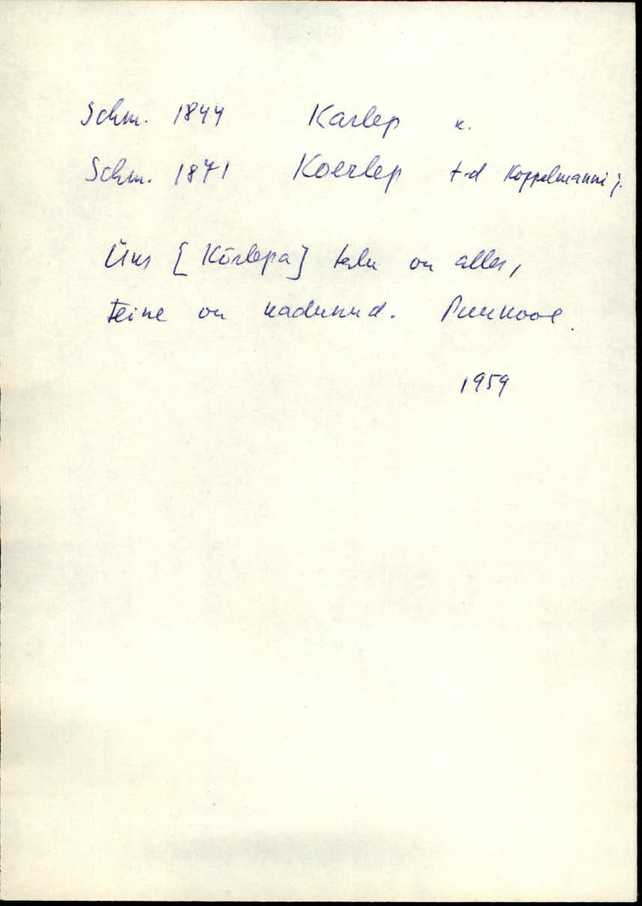 Schm. 1844 Karlep k.
Schm. 1871 Koerlep t-d Koppelmanni j.
Üks [Kõrlepa] talu on alles,
teine on kadunud.
1959